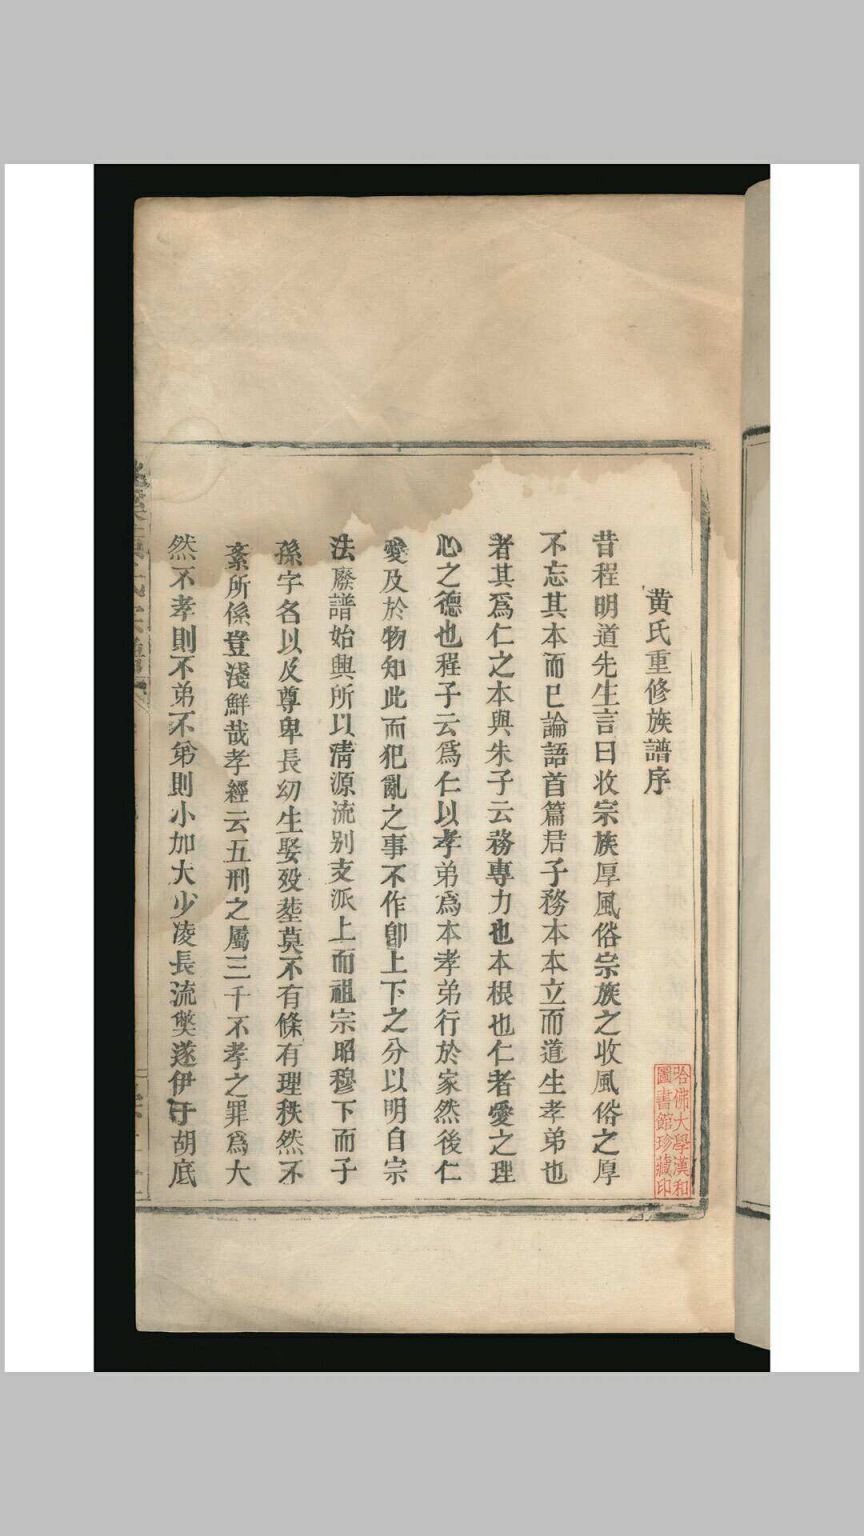 黄氏重修族譜序
昔程明道先生言曰收宗族厚風俗宗族之收風俗之厚
不忘其本而已論語首篇君子務本本立而道生孝弟也
者其爲仁之本與朱子云務專力也本根也仁者愛之理
心之德也程子云爲仁以孝弟爲本孝弟行於家然後仁
愛及於物知此而犯亂之事不作卽上下之分以明自宗
法廢譜始興所以清源流别支派上而祖宗昭穆下而子
孫字名以及尊卑長幼生娶殁塟莫不有條有理秩然不
紊所係豈淺鮮哉孝經云五刑之屬三千不孝之罪爲大
然不孝則不弟不弟則小加大少凌長流獘遂伊于胡底
哈佛大學漢和
圖書館珍藏印